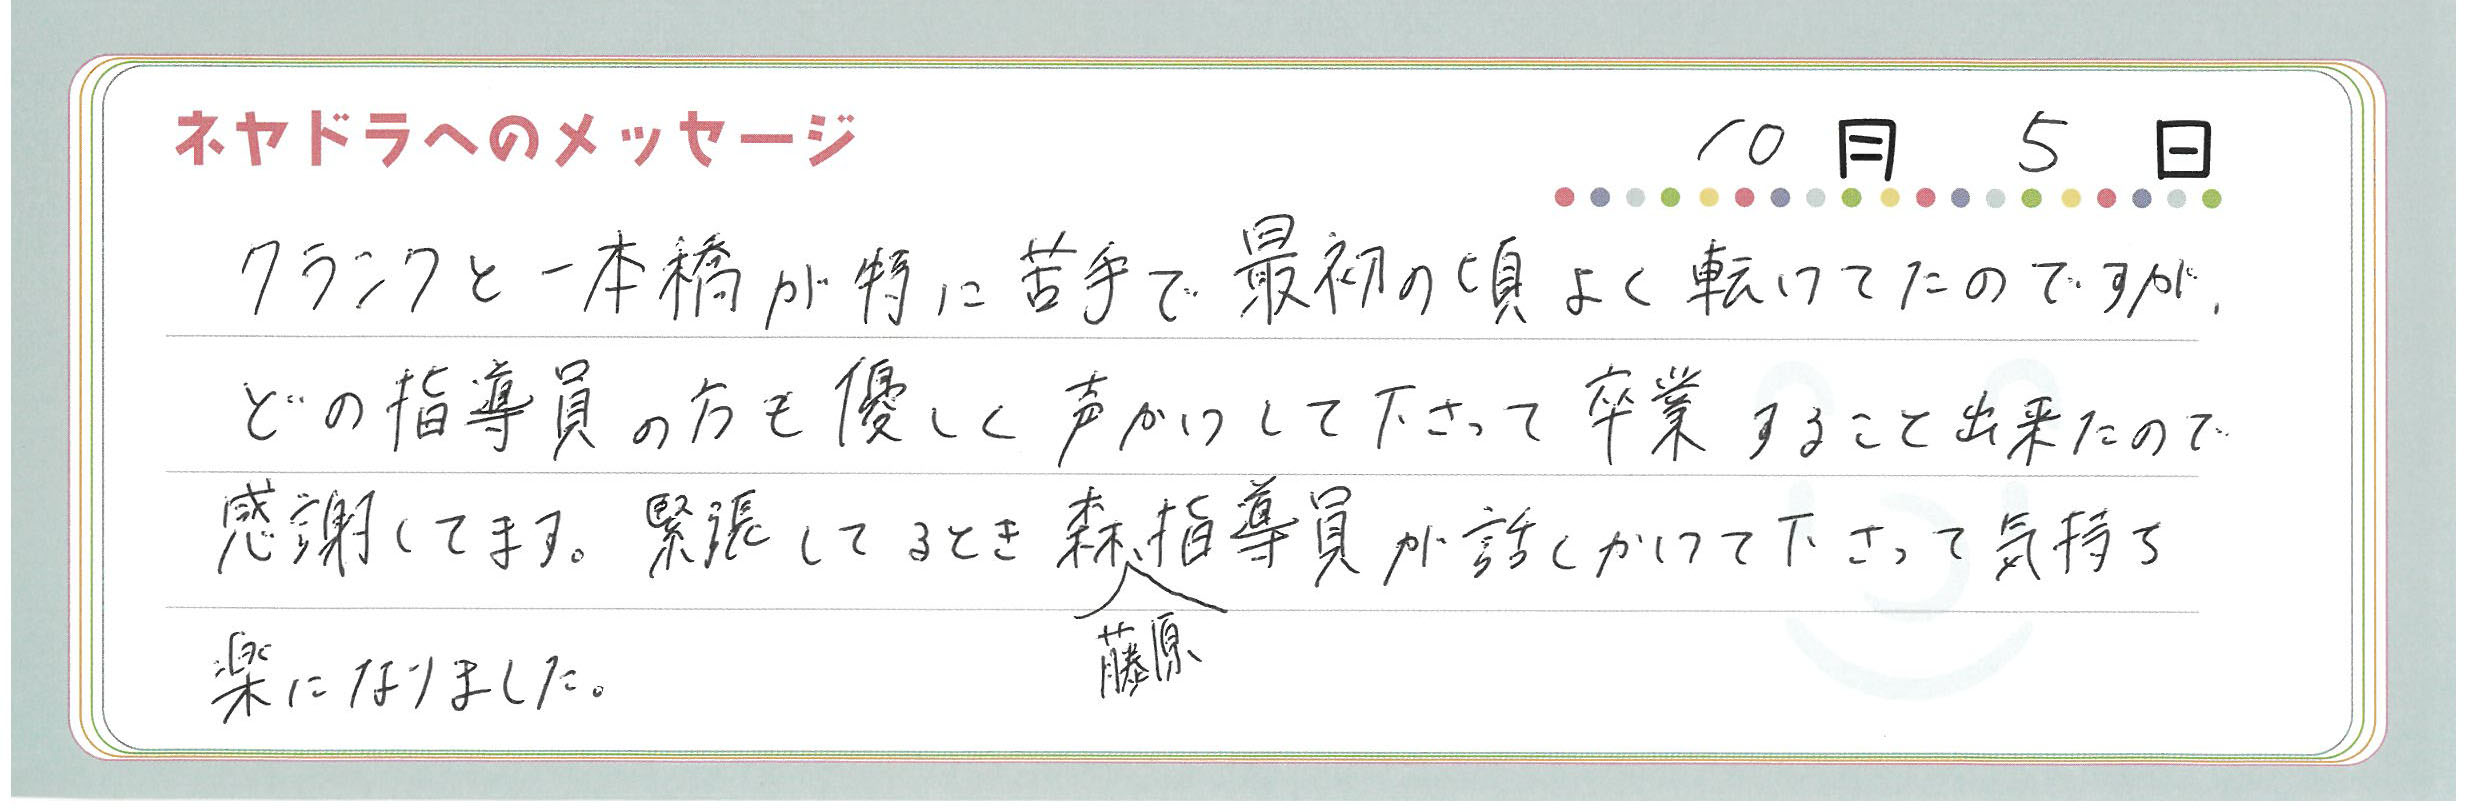 ネヤドラへのメッセージ
10月 5日
クランクと一本橋が特に苦手で最初の頃よく転けてたのですが、
どの指導員の方も優しく声かけして下さって卒業すること出来たので
感謝してます。緊張してるとき森、指導員が話しかけて下さって気持ち
藤原
楽になりました。